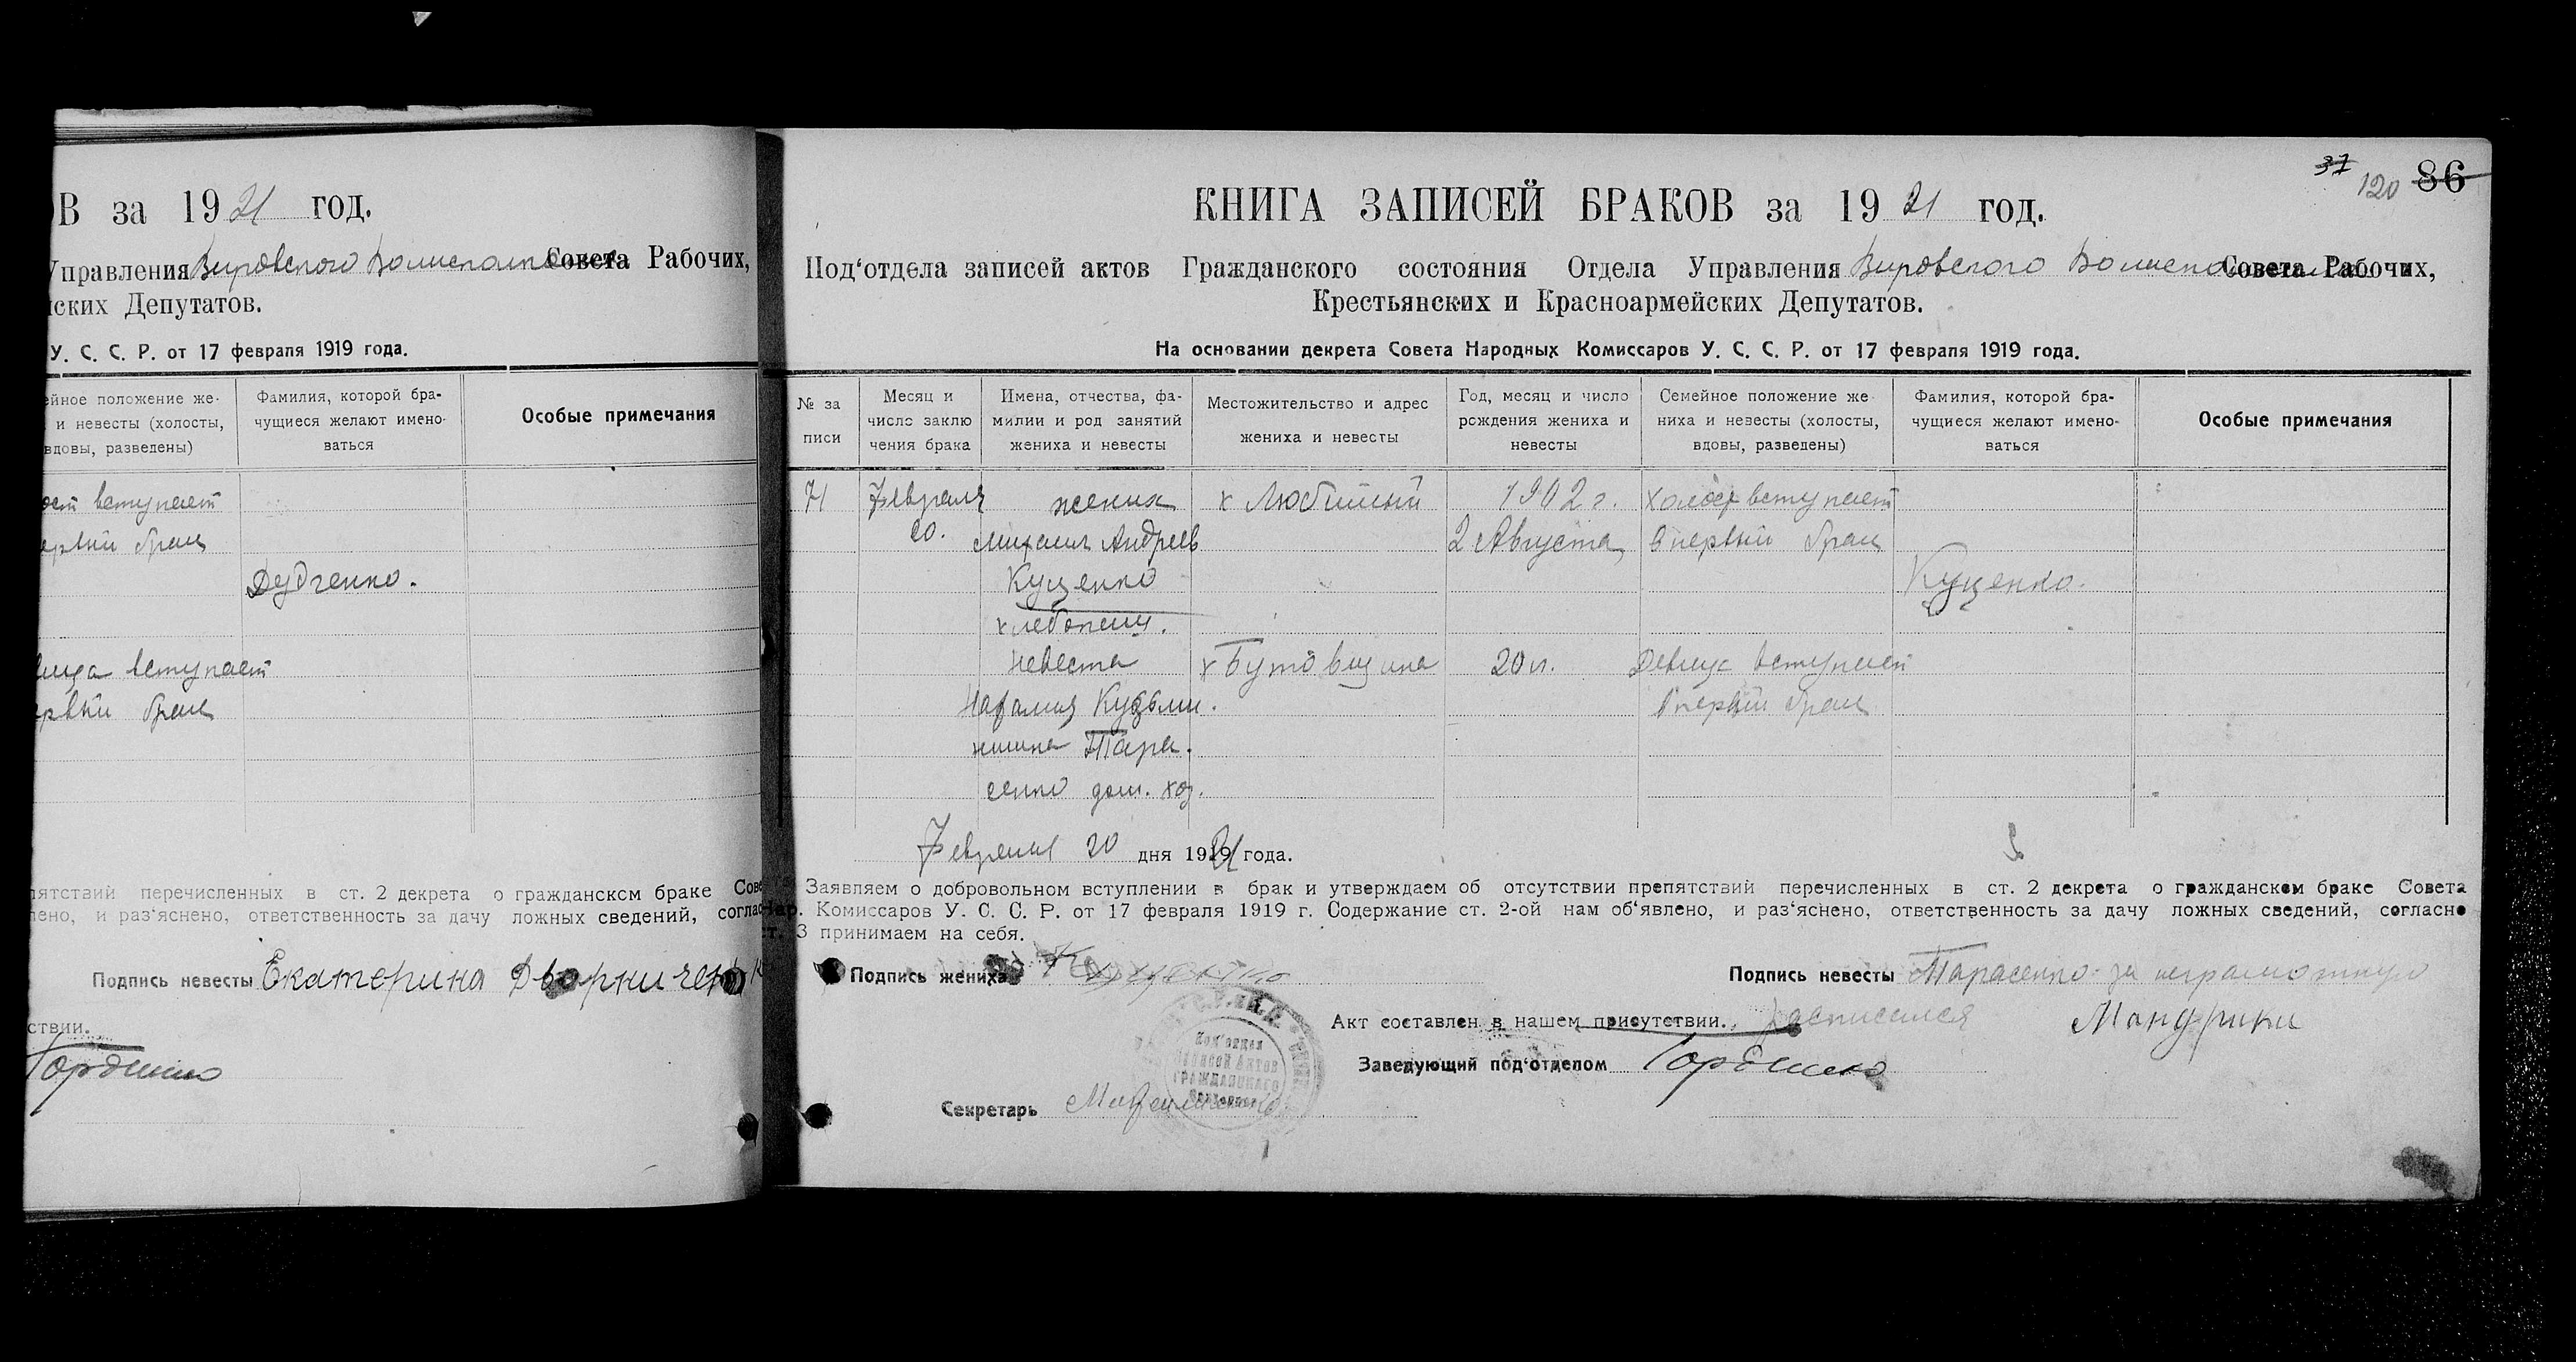 В за 1921 год.
Управления Вировского Волисполкома Совета Рабочих,
ских Депутатов.
У. С. С. Р. от 17 февраля 1919 года.
ейное положение же-
и невесты (холосты,
вдовы, разведены)
Фамилия, которой бра-
чущиеся желают имено-
ваться
Особые примечания
вступает
брак
Дудченко.
вступает
брак
пятствий перечисленных в ст. 2 декрета о гражданском браке Сове
лено, и раз'яснено, ответственность за дачу ложных сведений, соглас
Подпись невесты Екатерина
ствии.
Гордиенко
37 120 86
КНИГА ЗАПИСЕЙ БРАКОВ за 1921 год.
Под'отдела записей актов Гражданского состояния Отдела Управления Вировского Волисполкома Совета Рабочих,
Крестьянских и Красноармейских Депутатов.
На основании декрета Совета Народных Комиссаров У. С. С. Р. от 17 февраля 1919 года.
№ за
писи
Месяц и
число заклю
чения брака
Имена, отчества, фа-
милии и род занятий
жениха и невесты
Местожительство и адрес
жениха и невесты
Год, месяц и число
рождения жениха и
невесты
Семейное положение же
ниха и невесты (холосты,
вдовы, разведены)
Фамилия, которой бра-
чущиеся желают имено-
ваться
Особые примечания
71 Февраля жених х Любимый 1902 г. холост вступает
20. Михаил Андреев 2 Августа в первый брак
Куценко Куценко.
хлебопаш.
невеста х Бутовщина 20 л. Девица вступает
Наталия Кузьми. в первый брак
нишна Тара.
сенко дом. хоз.
Февраля 20 дня 1921 года.
Заявляем о добровольном вступлении в брак и утверждаем об отсутствии препятствий перечисленных в ст. 2 декрета о гражданском браке Совета
Нар. Комиссаров У. С. С. Р. от 17 февраля 1919 г. Содержание ст. 2-ой нам об'явлено, и раз'яснено, ответственность за дачу ложных сведений, согласно
ст. 3 принимаем на себя.
Подпись жениха Куценко
Подпись невесты Тарасенко за неграмотную
Акт составлен в нашем присутствии. расписался Мандрики
Под'отдел
Записей Актов
ГРАЖДАНСКОГО
Заведующий под'отделом Гордиенко
Секретарь